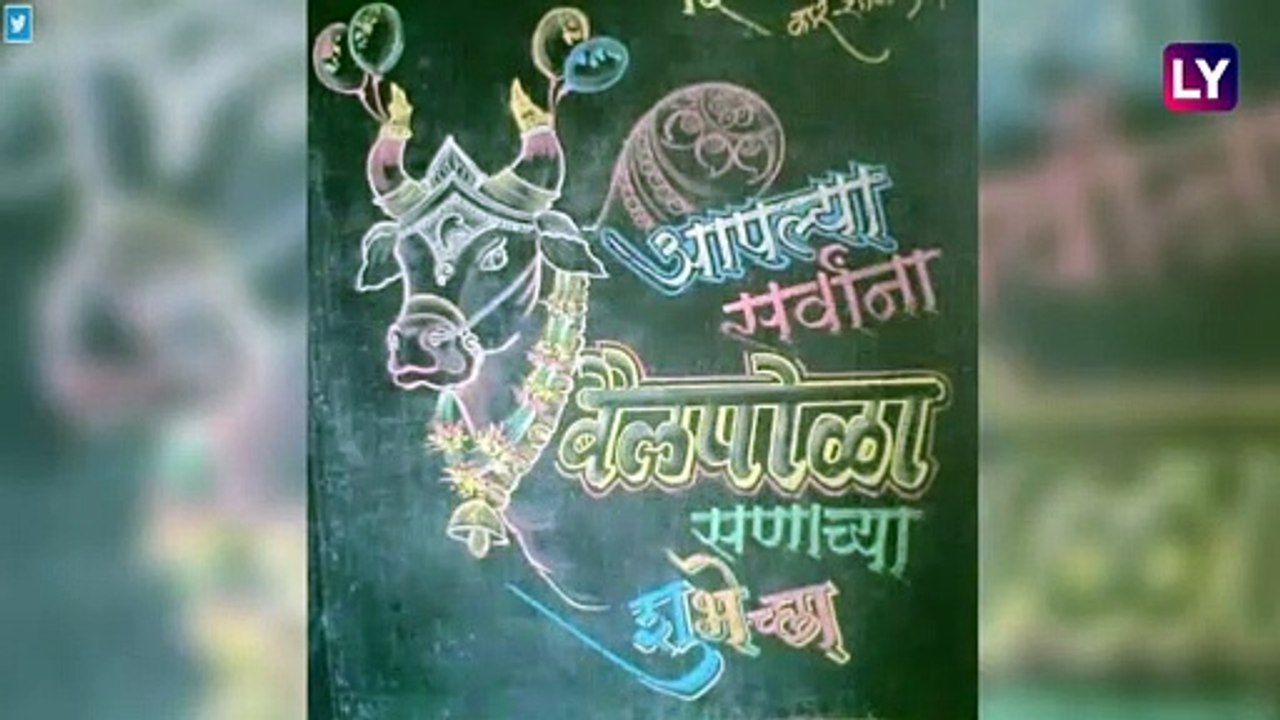 LY
आपल्या
सर्वांना
बैलपोळा
सणाच्या
शुभेच्छा